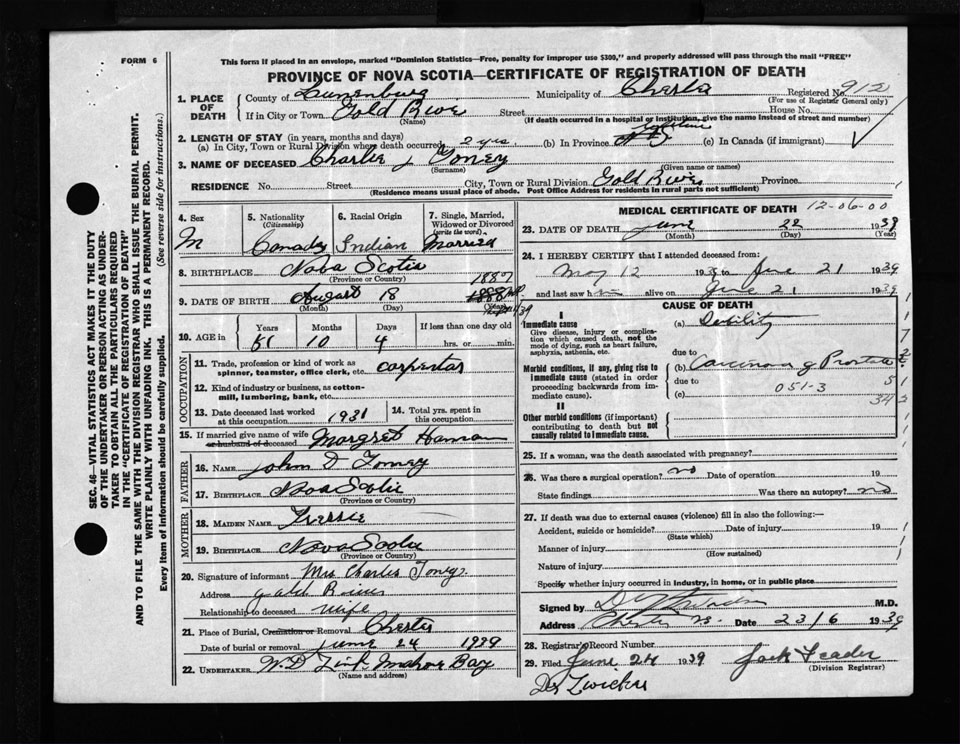 FORM 6
This form if placed in an envelope, marked "Dominion Statistics—Free, penalty for improper use $300," and properly addressed will pass through the mail "FREE"
PROVINCE OF NOVA SCOTIA—CERTIFICATE OF REGISTRATION OF DEATH
1. PLACE OF DEATH
County of Lunenburg Municipality of Chester Registered No. 912
(For use of Registrar General only)
If in City or Town Gold River Street House No.
(Name) (If death occurred in a hospital or institution, give the name instead of street and number)
2. LENGTH OF STAY (in years, months and days)
(a) In City, Town or Rural Division where death occurred 2 yrs (b) In Province lifetime (c) In Canada (if immigrant)
3. NAME OF DECEASED Charlie J Toney
(Surname) (Given name or names)
RESIDENCE No. Street City, Town or Rural Division Gold River Province
(Residence means usual place of abode. Post Office Address for residents in rural parts not sufficient)
4. Sex
M
5. Nationality
(Citizenship)
Canady
6. Racial Origin
Indian
7. Single, Married, Widowed or Divorced
(write the word)
Married
8. BIRTHPLACE Nova Scotia
(Province or Country)
1887
9. DATE OF BIRTH August 18 1888
(Month) (Day) (Year)
10. AGE in
Years Months Days If less than one day old
51 10 4 hrs. or min.
OCCUPATION
11. Trade, profession or kind of work as spinner, teamster, office clerk, etc. carpentar
12. Kind of industry or business, as cotton-mill, lumbering, bank, etc.
13. Date deceased last worked at this occupation 1931
14. Total yrs. spent in this occupation
15. If married give name of wife or husband of deceased Margret Hamon
FATHER
16. NAME John D Toney
17. BIRTHPLACE Nova Scotia
(Province or Country)
MOTHER
18. MAIDEN NAME
19. BIRTHPLACE Nova Scotia
(Province or Country)
20. Signature of informant Mrs Charles Toney
Address Gold River
Relationship to deceased wife
21. Place of Burial, Cremation or Removal Chester
Date of burial or removal June 24 1939
22. UNDERTAKER W.D Zink Mahone Bay
(Name and address)
MEDICAL CERTIFICATE OF DEATH 12-06-00
23. DATE OF DEATH June 22 1939
(Month) (Day) (Year)
24. I HEREBY CERTIFY that I attended deceased from:
May 12 193 to June 21 1939
and last saw him alive on June 21 1939
CAUSE OF DEATH
I
Immediate cause
Give disease, injury or complication which caused death, not the mode of dying, such as heart failure, asphyxia, asthenia, etc.
(a) Debility
due to
Morbid conditions, if any, giving rise to immediate cause (stated in order proceeding backwards from immediate cause).
(b) Carcinoma of Prostate
due to 051-3
(c)
II
Other morbid conditions (if important) contributing to death but not causally related to immediate cause.
25. If a woman, was the death associated with pregnancy?
26. Was there a surgical operation? no Date of operation 19
State findings Was there an autopsy? no
27. If death was due to external causes (violence) fill in also the following:—
Accident, suicide or homicide? Date of injury 19
(State which)
Manner of injury
(How sustained)
Nature of injury
Specify whether injury occurred in industry, in home, or in public place
Signed by M.D.
Address Chester NS. Date 23/6 1939
28. Registrar's Record Number
29. Filed June 24 1939 Jack Feader
(Division Registrar)
Dr Zwicker
SEC. 46—VITAL STATISTICS ACT MAKES IT THE DUTY
OF THE UNDERTAKER OR PERSON ACTING AS UNDER-
TAKER TO OBTAIN ALL THE PARTICULARS REQUIRED
IN THE "CERTIFICATE OF REGISTRATION OF DEATH"
AND TO FILE THE SAME WITH THE DIVISION REGISTRAR WHO SHALL ISSUE THE BURIAL PERMIT.
WRITE PLAINLY WITH UNFADING INK. THIS IS A PERMANENT RECORD.
Every item of information should be carefully supplied. (See reverse side for instructions.)